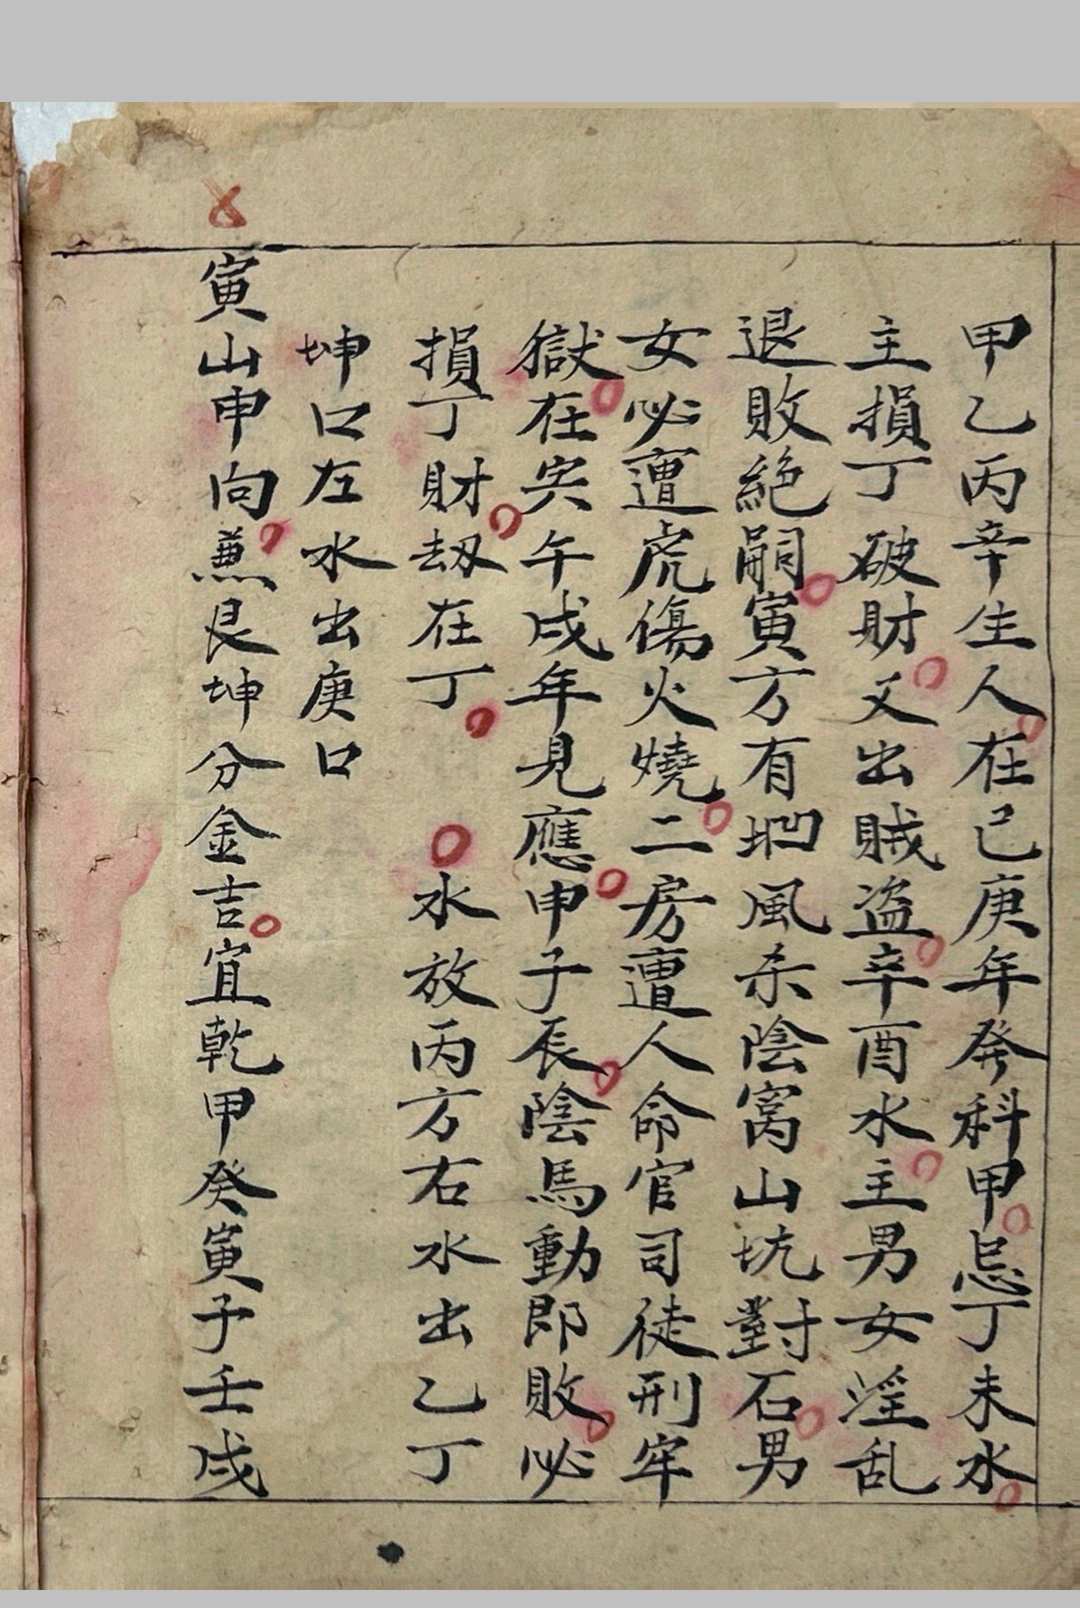 甲乙丙辛生人在己庚年発科甲忌丁未水
主損丁破財又出賊盗辛酉水主男女淫乱
退敗絶嗣寅方有坳風杀陰窩山坑對石男
女必遭虎傷火燒二房遭人命官司徒刑牢
獄在寅午戌年見應申子辰陰馬動即敗必
損丁財刼在丁 水放丙方右水出乙丁
坤口左水出庚口
寅山申向兼艮坤分金吉宜乾甲癸寅子壬戌